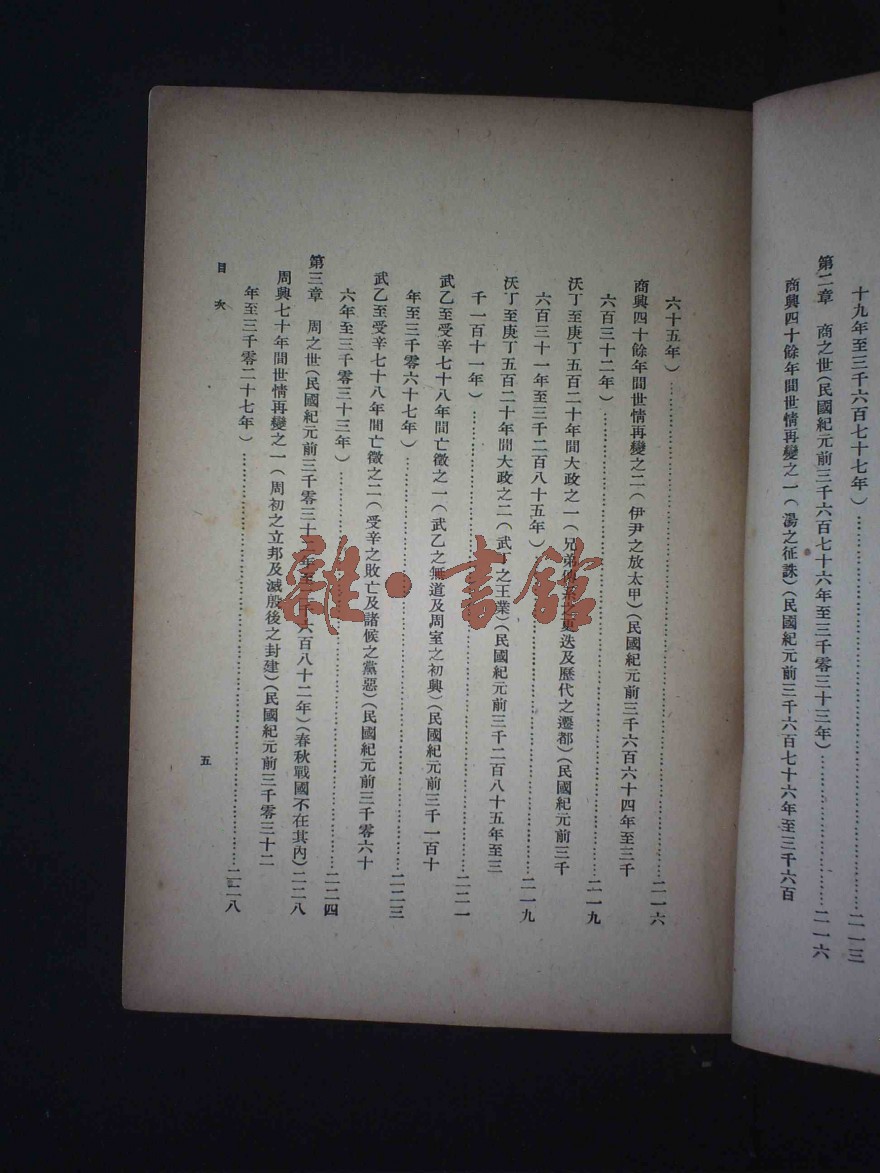 十九年至三千六百七十七年)……二一三
第二章 商之世(民國紀元前三千六百七十六年至三千零三十三年)……二一六
商興四十餘年間世情再變之一(湯之征誅)(民國紀元前三千六百七十六年至三千六百
六十五年)……二一六
商興四十餘年間世情再變之二(伊尹之放太甲)(民國紀元前三千六百六十四年至三千
六百三十二年)……二一九
沃丁至庚丁五百二十年間大政之一(兄弟之更迭及歷代之遷都)(民國紀元前三千
六百三十一年至三千二百八十五年)……二一九
沃丁至庚丁五百二十年間大政之二(武丁之王業)(民國紀元前三千二百八十五年至三
千一百十一年)……二二一
武乙至受辛七十八年間亡徵之一(武乙之無道及周室之初興)(民國紀元前三千一百十
年至三千零六十七年)……二二三
武乙至受辛七十八年間亡徵之二(受辛之敗亡及諸侯之黨惡)(民國紀元前三千零六十
六年至三千零三十三年)……二二四
第三章 周之世(民國紀元前三千零三十二年至二千六百八十二年)(春秋戰國不在其內)二二八
周興七十年間世情再變之一(周初之立邦及滅殷後之封建)(民國紀元前三千零三十二
年至三千零二十七年)……二二八
目次
五
雜·書館